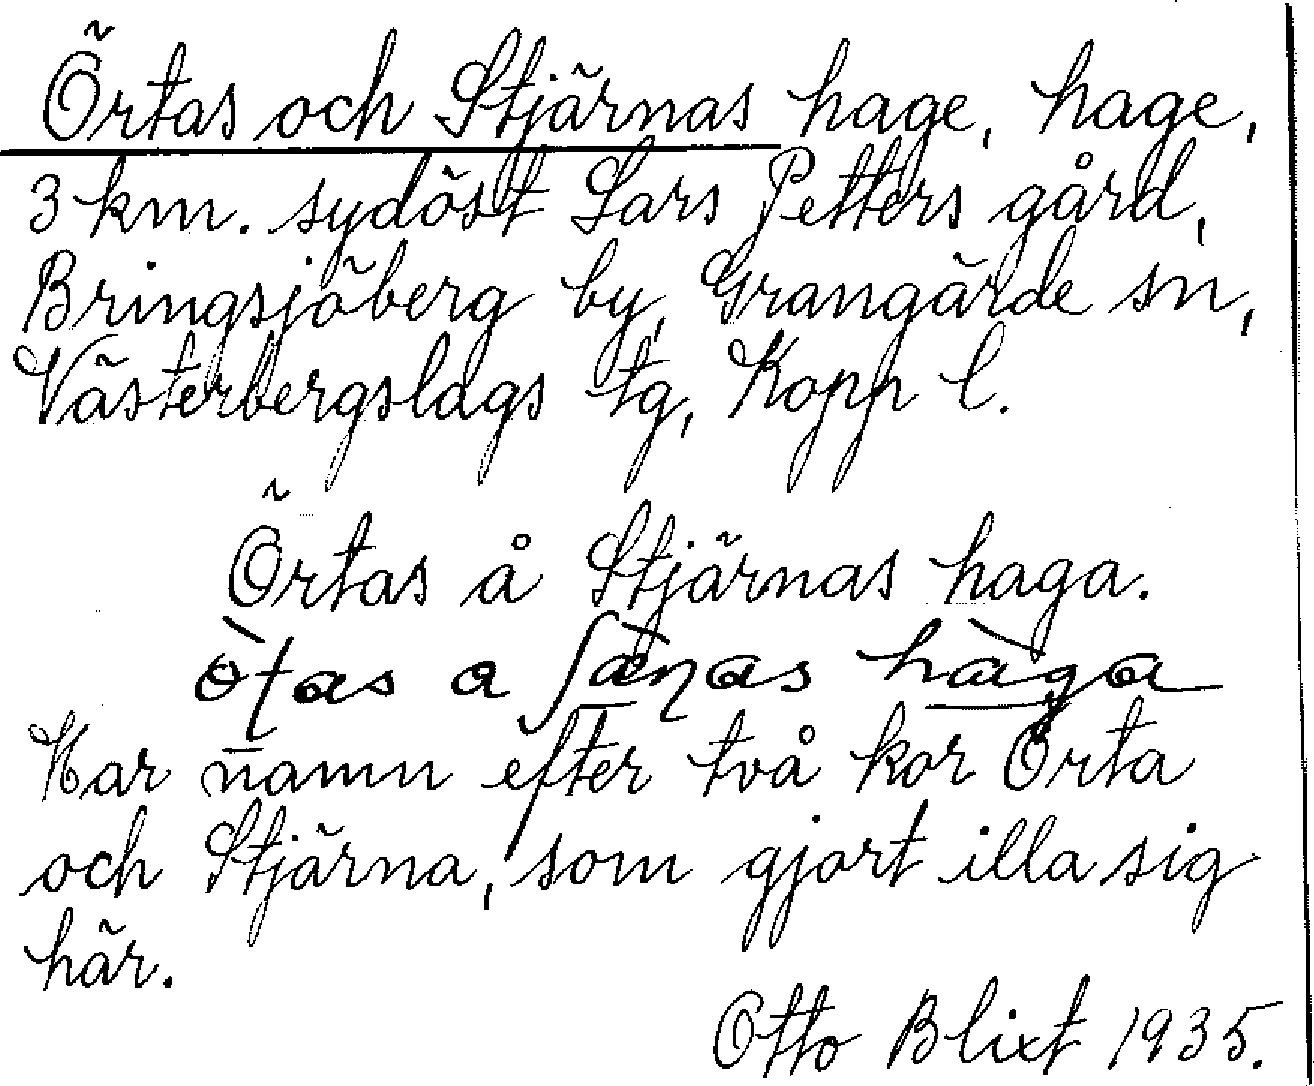 Örtas och Stjärnas hage, hage,
3 km. sydöst Lars Petters gård,
Bringsjöberg by, Grangärde sn,
Västerbergslags tg, Kopp l.
Örtas å Stjärnas haga.
a
Har namn efter två kor Örta
och Stjärna, som gjort illa sig
här.
Otto Blixt 1935.